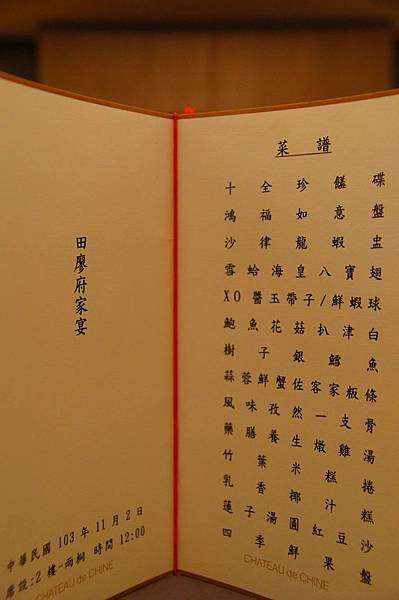 田廖府家宴
中華民國 103 年 11 月 2 日
席設:2 樓-雨桐 時間 12:00
CHATEAU de CHINE
菜譜
十全珍饈碟
鴻福如意盤
沙律龍蝦盅
雪蛤海皇八寶翅
XO 醬玉帶子/鮮蝦球
鮑魚花菇扒津白
樹子銀鱈魚
蒜蓉鮮蟹佐客家粄條
風味孜然一支骨
藥膳養生燉雞湯
竹葉米糕捲
乳香椰汁糕
蓮子湯圓紅豆沙
四季鮮果盤
CHATEAU de CHINE